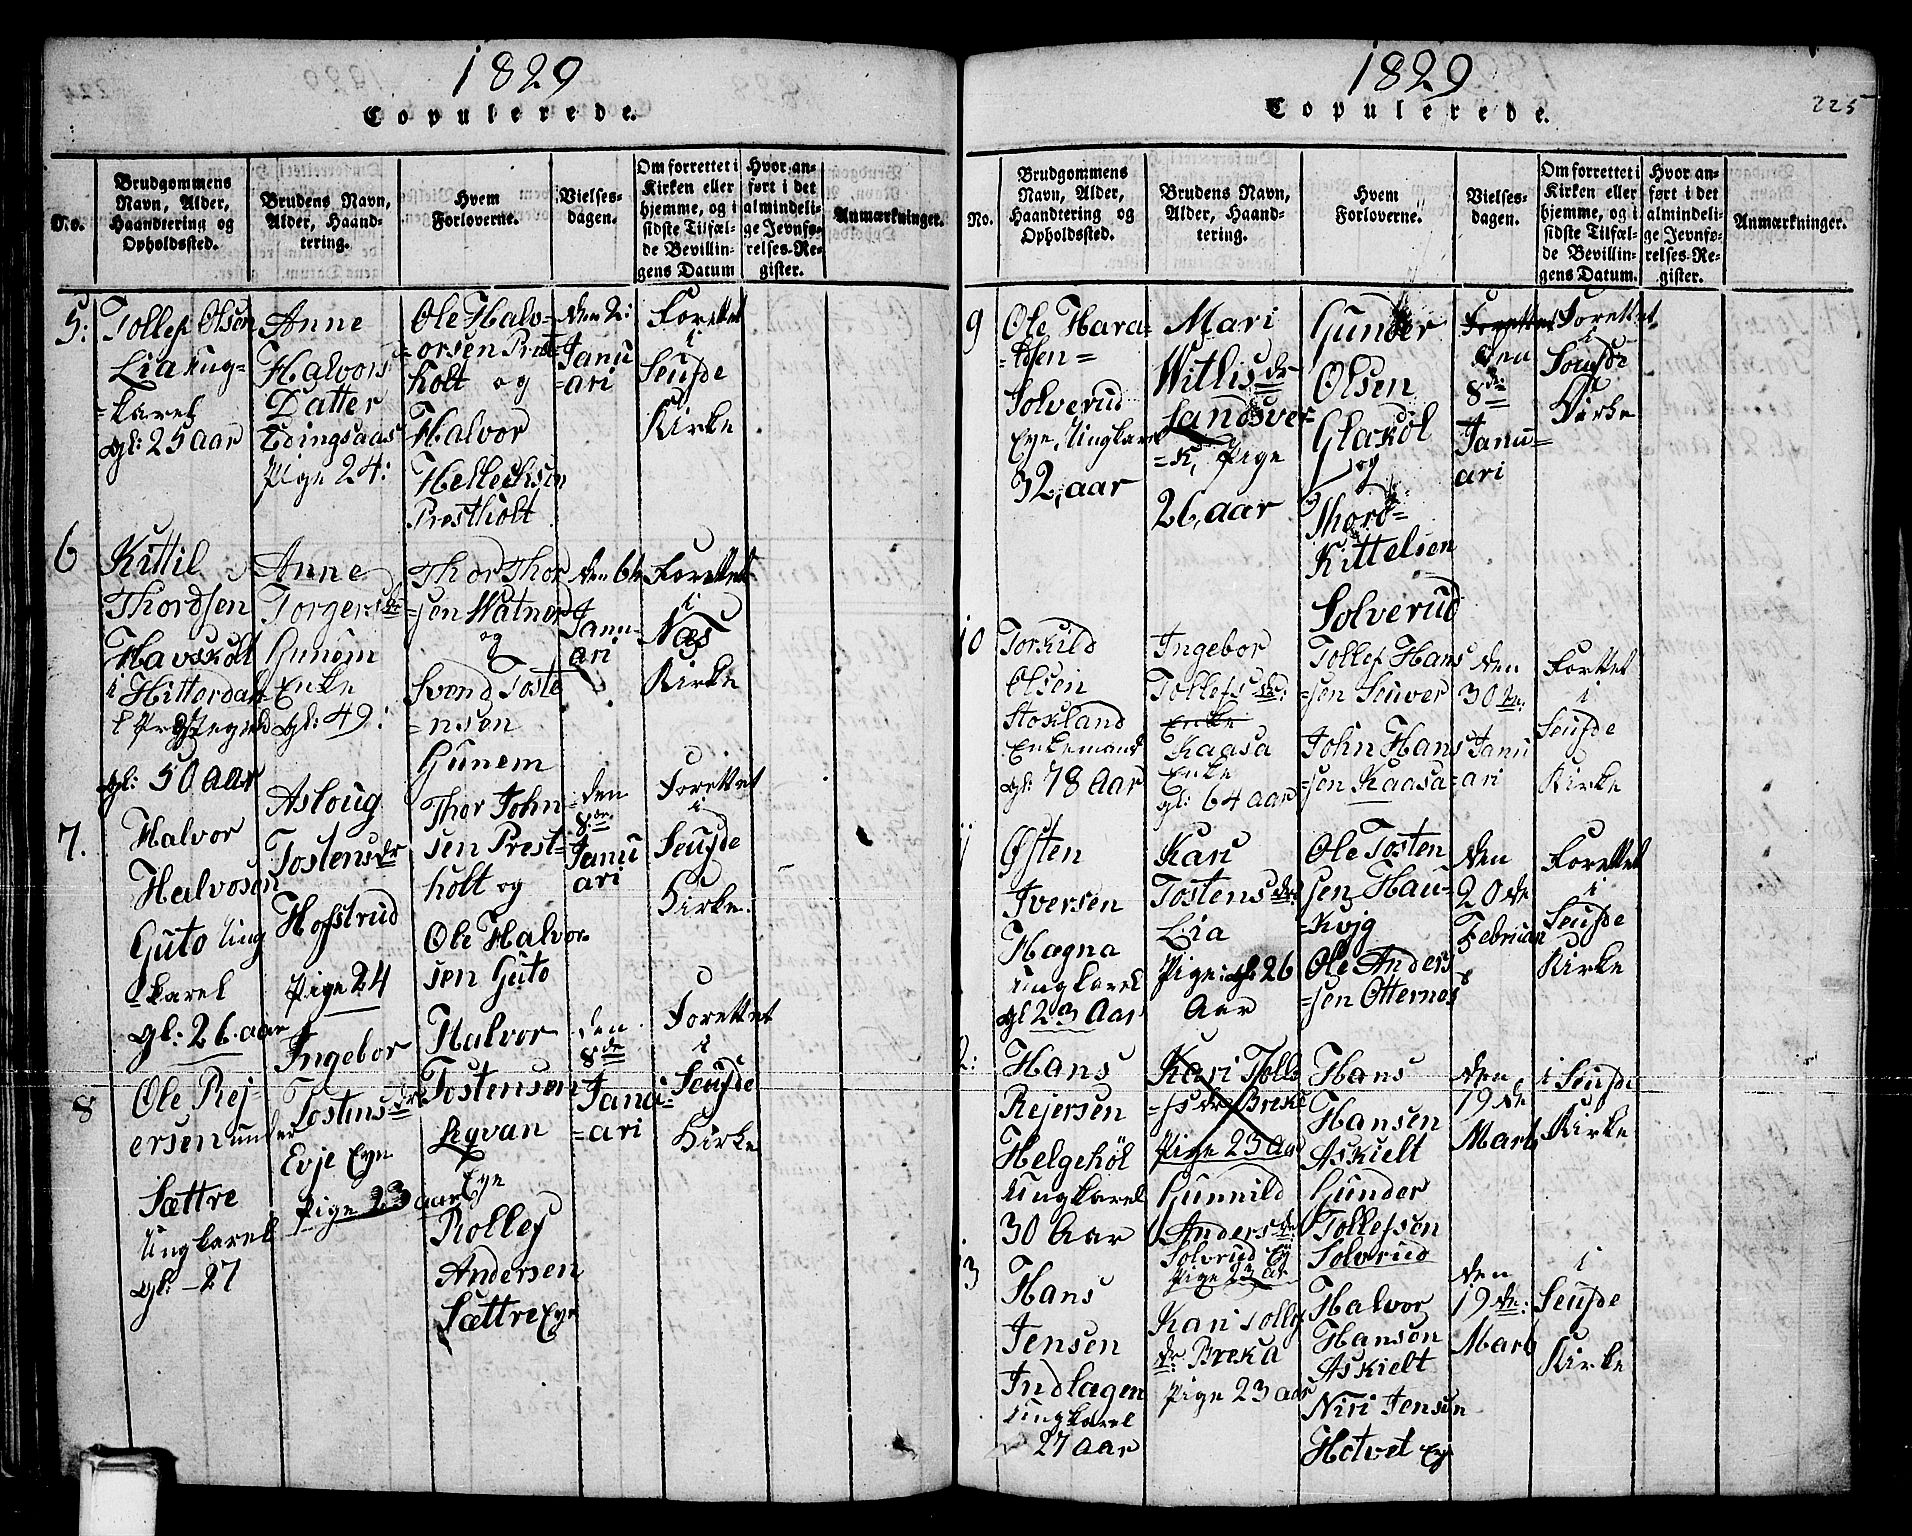 1829
Copulerede.
No.
Brudgommens
Navn, Alder,
Haandtering og
Opholdssted.
Brudens Navn,
Alder, Haand-
tering.
Hvem
Forloverne.
Vielses-
dagen.
Om forrettet i
Kirken eller
hjemme, og i
sidste Tilfæl-
de Bevillin-
gens Datum
Hvor an-
ført i det
almindeli-
ge Jevnfø-
relses-Re-
gister.
Anmærkninger.
5:
Tollef Olsen
Lia ung-
=karel
gl: 25 aar
Anne
Halvors
Datter
Edingsaas
Pige 24:
Ole Halv-
=orsen Prest-
holt og
Halvor
Helleksen
Prestholt
den 2:
Janu
=ari
Forettet
i
Seufde
Kirke
6
Kittil
Thordsen
Havskolt
i Hitterdahl
gl: 50 Aar
Anne
Torgersdr
Gunem
Enke
gl: 49:
Thor Thor
=sen Watner
og
Svend Toste
=nsen
Gunem
den 6te
Janu-
ari
Forettet
i
Næs
Kirke
7.
Halvor
Halvosen
Guto Ung
=karel
gl: 26. aar
Asloug
Tostensdr
Hofstrud
Pige 24
Thor John
sen Prest-
holt og
Ole Halvor
sen Guto
den
8de
Janu
ari
Forettet
i
Seufde
Kirke.
8
Ole Rej-
ersen under
Sættre
Ungkarel
gl: - 27
Ingebor
Tostensdr
Evje Eye
Pige 23 aar
Halvor
Tostensen
Eye
Rollef
Andersen
Sættre Eye
den
8de
Janu
=ari
Forettet
i
Seufde
Kirke
1829
225
Copulerede.
No.
Brudgommens
Navn, Alder,
Haandtering og
Opholdssted.
Brudens Navn,
Alder, Haand-
tering.
Hvem
Forloverne.
Vielses-
dagen.
Om forrettet i
Kirken eller
hjemme, og i
sidste Tilfæl-
de Bevillin-
gens Datum.
Hvor an-
ført i det
almindeli-
ge Jevnfø-
relses-Re-
gister.
Anmærkninger.
9
Ole Hara-
ldsen=
Solverud
Eye, Ungkarel
32, aar
Mari
Witlisdr
Landsver-
=k, Pige
26, aar
Gunder
Olsen
Glaköl
og
Thord-
Kittelsen
Solverud
Forettet
den
8de
Janu=
ari
Forettet
i
Seufde
Kirke
10
Torkild
Olsen
Stokland
Enkemand
gl: 78 Aar
Ingebor
Tollefsdr:
Enke
Kaasa
Enke
gl: 64 aar
Tollef Hans
=sen Seuver
John Hans
=sen Kaasa
den
30de:
Janu
=ari
Forettet
i
Seufde
Kirke
Østen
Iversen
Hægna
Ungkarel
gl 23 Aar
Kari
Tostensdr:
Lia
Pige: gl 26
Aar
Ole Tosten
sen Hau-
=kvjg
Ole Anders
=sen Otternes
den
20de
Februar
Forettet
i
Seufde
Kirke
2:
Hans
Rejersen
Helgehöl
Ungkarel
30 Aar
Kari Tolle
=fsdr Breke
Pige 23 Aar
Gunnild
Andersdr:
Solvrud Ey
Pige 23 ar
Hans
Hansen
Askielt
Gunder
Tollefson
Solvrud
den
19de
Marts
i Seufde
Kirke
13
Hans
Jensen
Indlægen
Ungkarel
27 aar
Kari Tollefs
dr Breka
Pige 23 aar
Halvor
Hanson
Askielt
Niri Jensen
Hotvet Ey
den
19de:
Marts
i
Seufde
Kirke